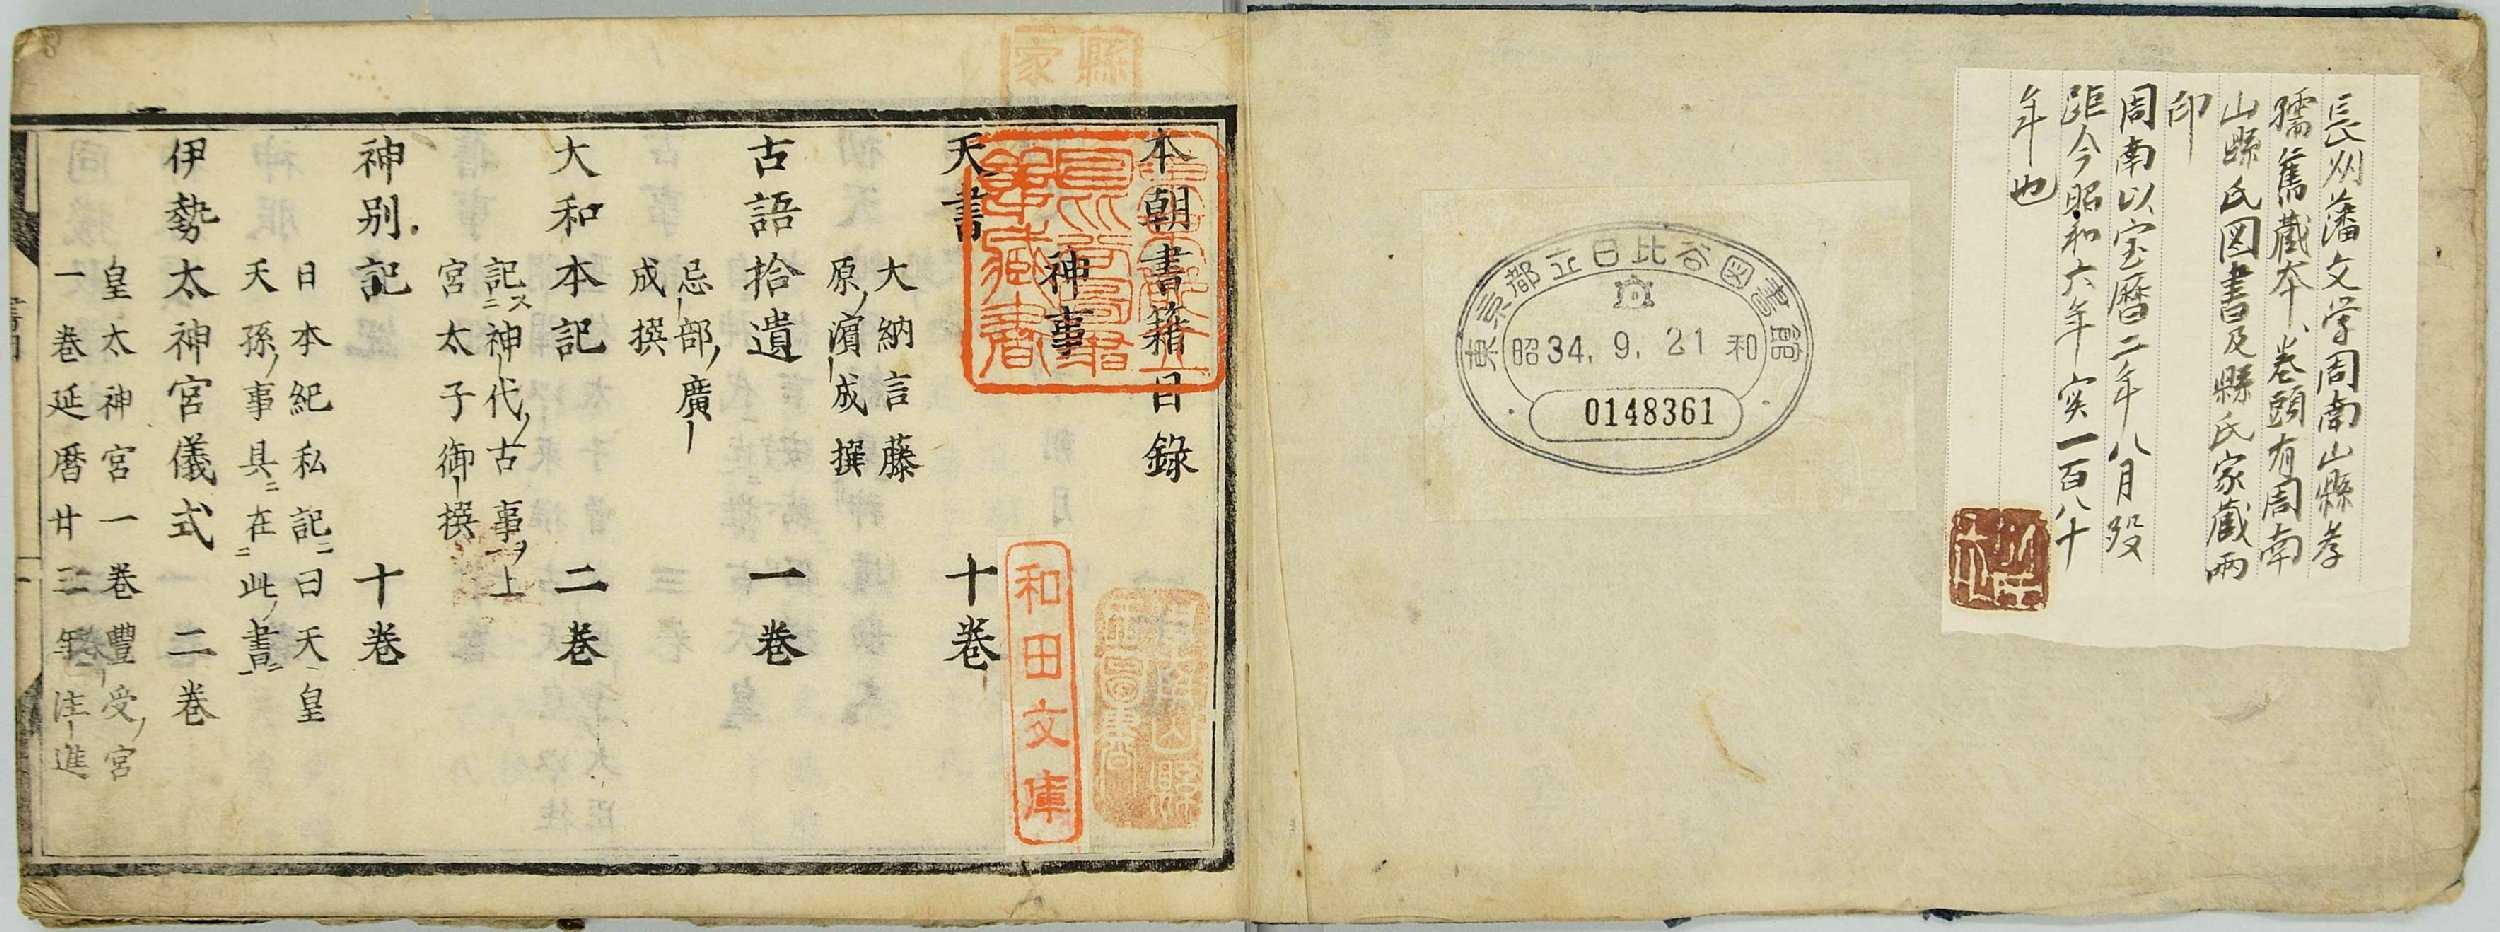 長州藩文学周南山縣孝
孺旧蔵本、巻頭有周南
山縣氏図書及縣氏家蔵両
印
周南以宝暦二年八月歿
距今昭和六年実一百八十
年也
東京都立日比谷図書館
昭 34. 9. 21 和
0148361
縣
家
本朝書籍目録
神事
天書 十巻
大納言藤
原ノ濱成撰
古語拾遺 一巻
忌部ノ廣
成撰
大和本記 二巻
記ス神代ノ古事ヲ上
宮太子御撰
神别記 十巻
日本紀私記ニ曰天皇
天孫ノ事具ニ在ニ此ノ書ニ
伊勢太神宮儀式 二巻
皇太神宮一巻豐受ノ宮
一巻延暦廿三年注進
和田文庫